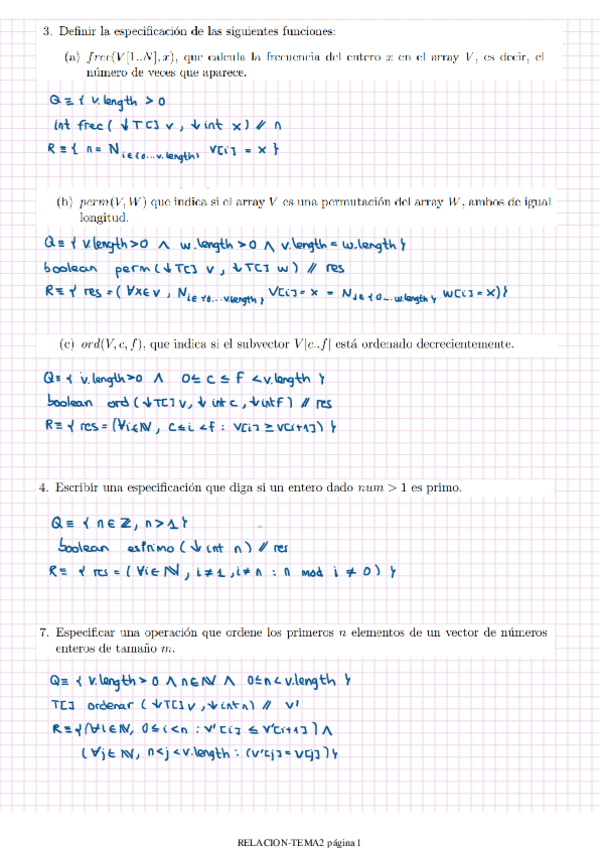 3. Definir la especificación de las siguientes funciones:
(a) frec(V[1..N], x), que calcula la frecuencia del entero x en el array V, es decir, el
número de veces que aparece.
Q ≡ { v.length > 0
int frec ( ↓T[] v , ↓int x ) // n
R ≡ { n = N i∈{0...v.length} V[i] = x }
(b) perm(V, W) que indica si el array V es una permutación del array W, ambos de igual
longitud.
Q ≡ { v.length>0 ∧ w.length>0 ∧ v.length = w.length }
boolean perm ( ↓T[] v , ↓T[] w ) // res
R ≡ { res = ( ∀x∈v , N i∈{0...v.length} V[i] = x = N j∈{0...w.length} W[i] = x ) }
(c) ord(V, c, f), que indica si el subvector V[c..f] está ordenado decrecientemente.
Q ≡ { v.length>0 ∧ 0≤ c ≤ f < v.length }
boolean ord ( ↓T[] v, ↓int c , ↓int f ) // res
R ≡ { res = (∀i∈ℕ , c≤i <f : V[i] ≥ V[i+1] ) }
4. Escribir una especificación que diga si un entero dado num > 1 es primo.
Q ≡ { n∈ℤ , n>1 }
boolean esPrimo ( ↓int n ) // res
R ≡ { res = ( ∀i∈ℕ , i≠1 , i≠n : n mod i ≠ 0 ) }
7. Especificar una operación que ordene los primeros n elementos de un vector de números
enteros de tamaño m.
Q ≡ { v.length > 0 ∧ n∈ℕ ∧ 0≤n< v.length }
T[] ordenar ( ↓T[] v , ↓int n ) // v'
R ≡ { (∀i∈ℕ, 0≤i<n : v'[i] ≤ v'[i+1] ) ∧
( ∀j∈ℕ, n<j<v.length : (v'[j] = v[j]) }
RELACION-TEMA2 página 1